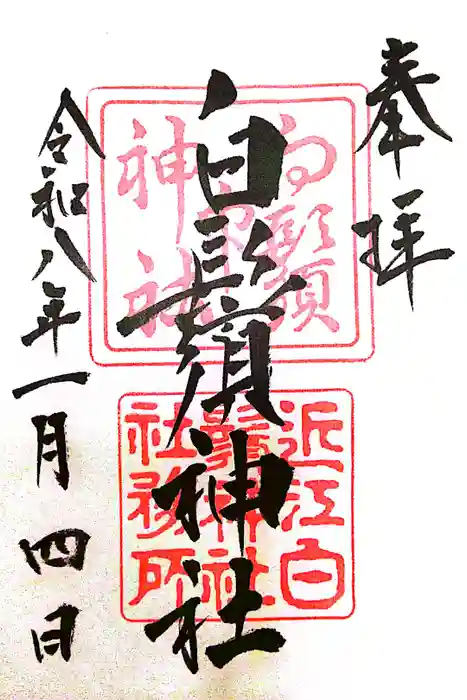 奉拝
白鬚神社
令和八年一月四日
白鬚
神社
近江白
鬚神社
社務所